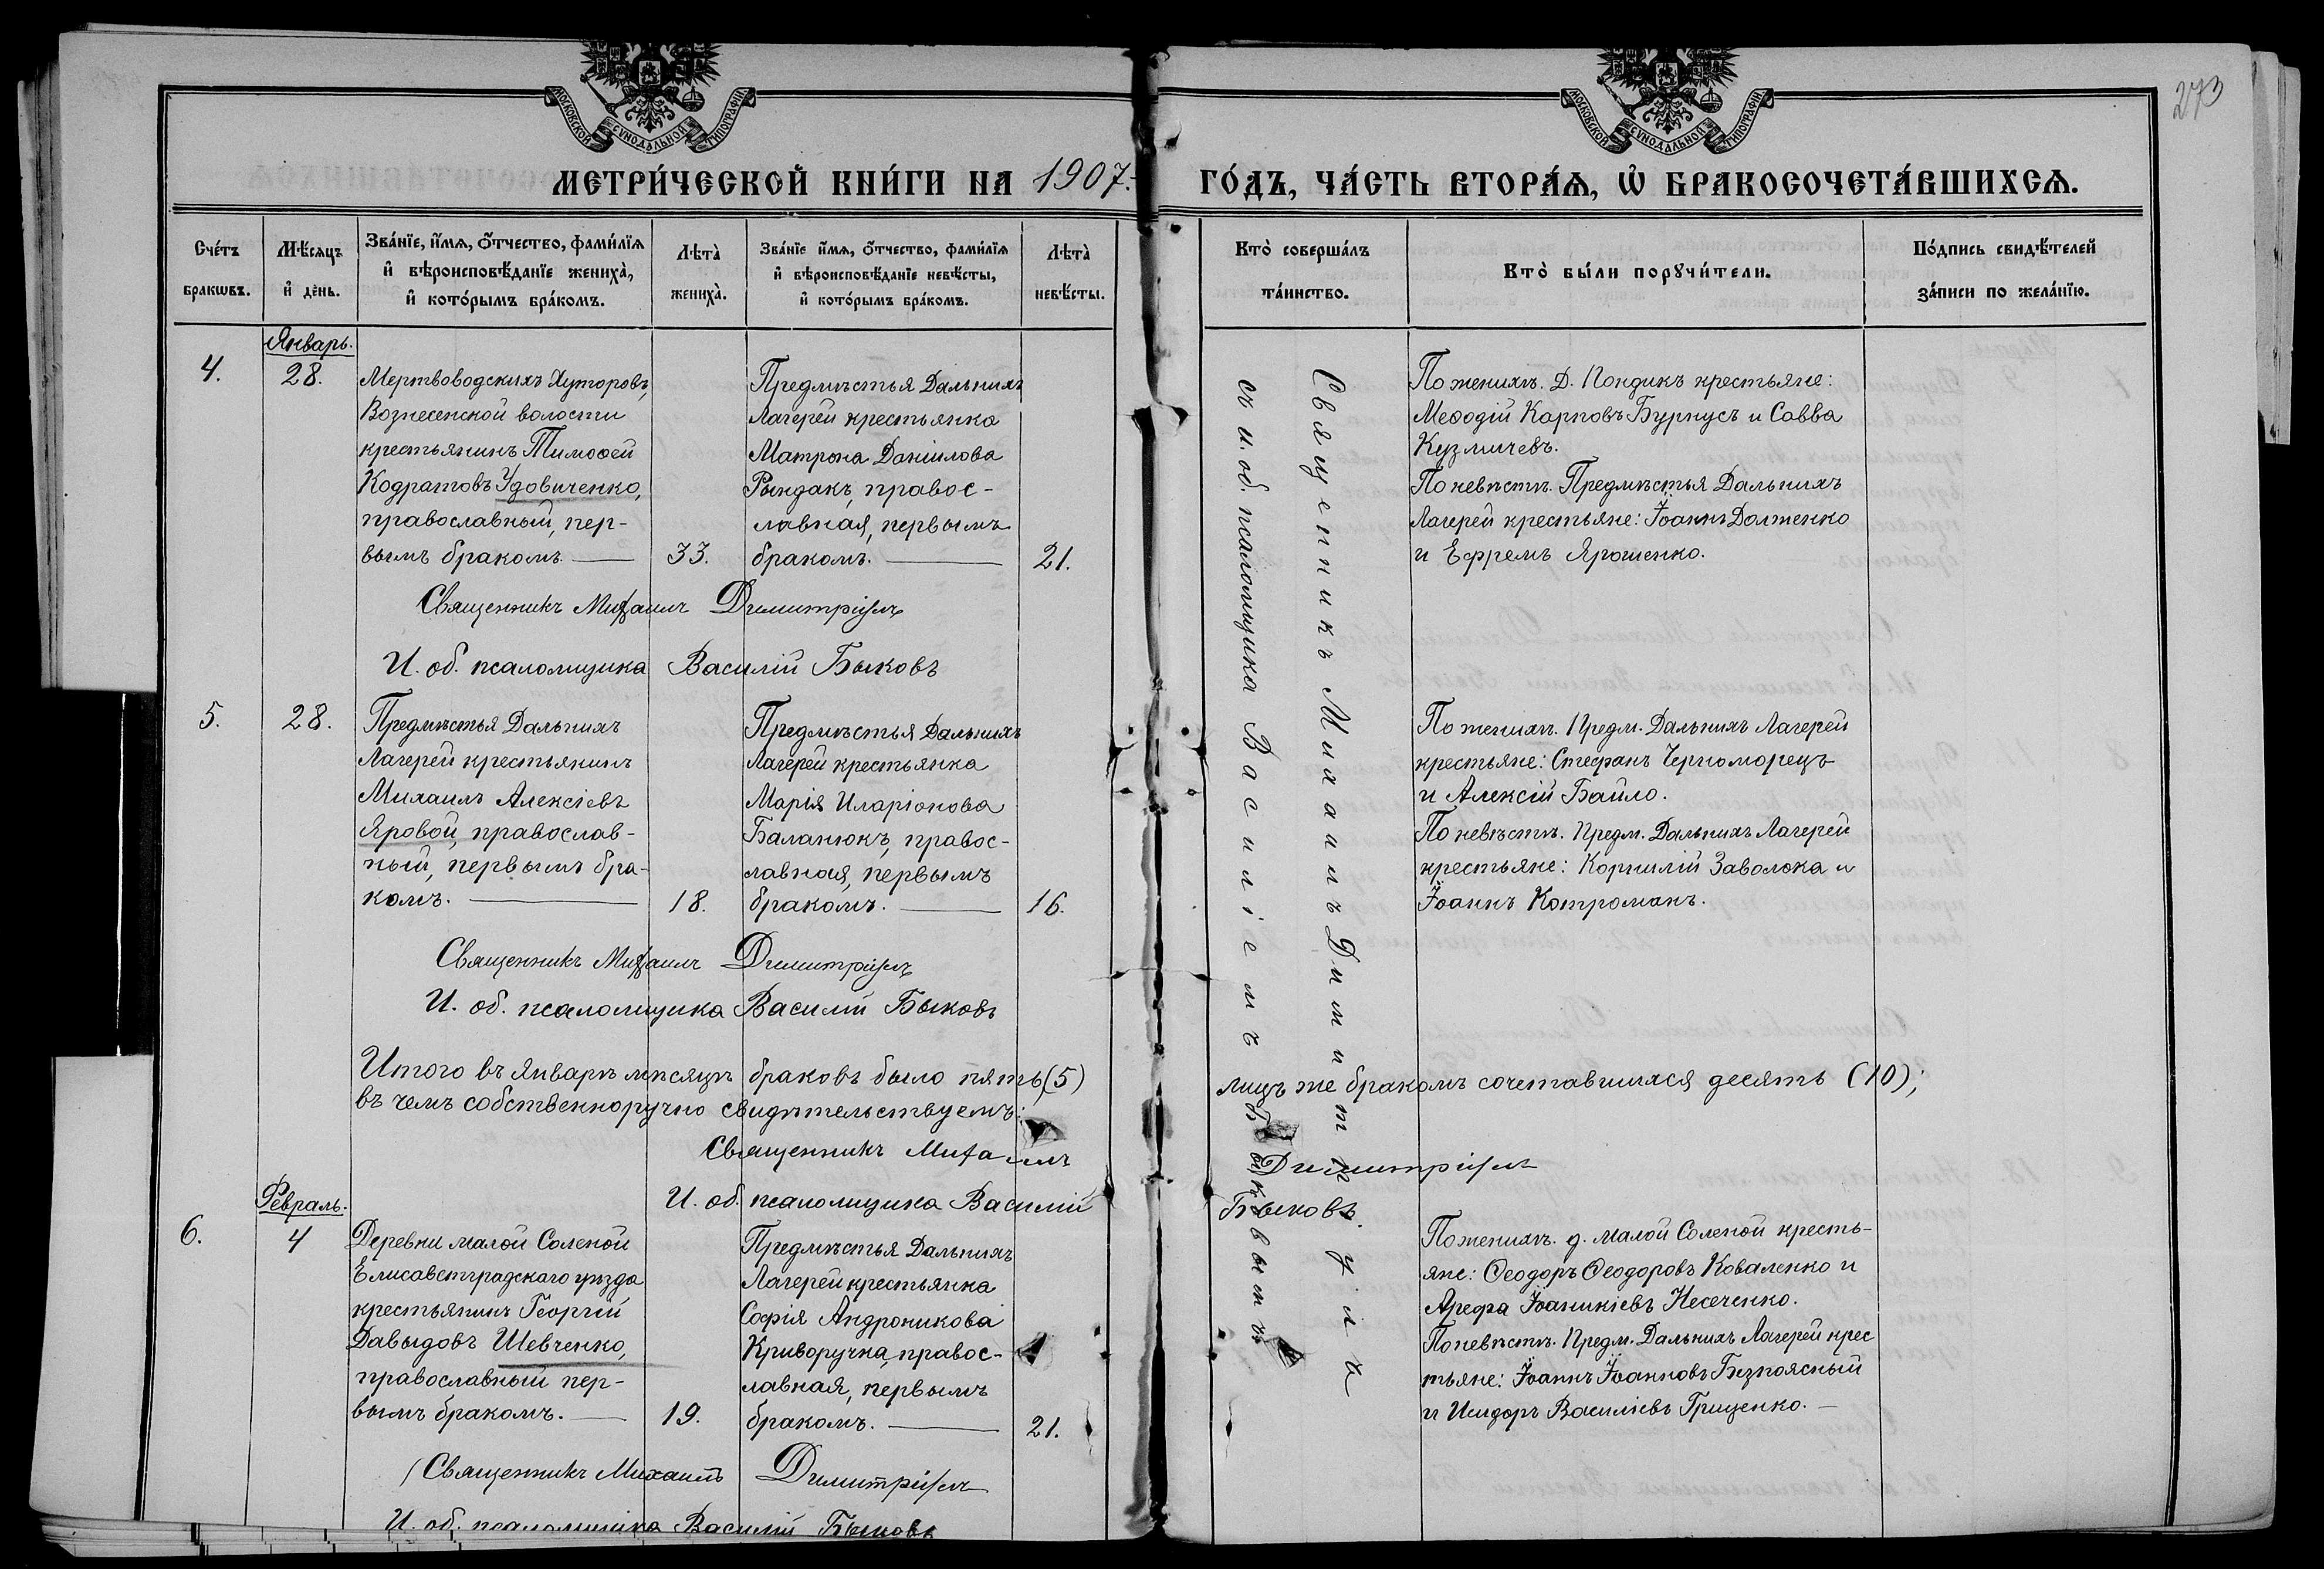 273
МОСКОВСКОЙ СѴНОДАЛЬНОЙ ТИПОГРАФІИ
МОСКОВСКОЙ СѴНОДАЛЬНОЙ ТИПОГРАФІИ
МЕТРИ́ЧЕСКОЙ КНИ́ГИ НА 1907.
ГО́ДЪ, ЧА́СТЬ ВТОРА́Ѧ, Ѡ҆ БРАКОСОЧЕТА́ВШИХСѦ.
Сче́тъ
браковъ.
Мѣ́сяцъ
и҆ де́нь.
Зва́нїе, и҆́мѧ, ѻ҆́тчество, фами́лїѧ
и҆ вѣроисповѣ́данїе жениха̀,
и҆ кото́рымъ бра́комъ.
Лѣта̀
жениха̀.
Зва́нїе и҆́мѧ, ѻ҆́тчество, фами́лїѧ
и҆ вѣроисповѣ́данїе невѣ́сты,
и҆ кото́рымъ бра́комъ.
Лѣта̀
невѣ́сты.
Кто̀ соверша́лъ
та́инство.
Кто̀ бы́ли порꙋчи́тели.
По́дпись свидѣ́телей
за́писи по жела́нїю.
Январь.
4.
28.
Мертвоводскихъ Хуторовъ,
Вознесенской волости
крестьянинъ Тимоѳей
Кодратовъ Удовиченко,
православный, пер-
вымъ бракомъ.
33.
Предмѣстья Дальнихъ
Лагерей крестьянка
Матрона Даніилова
Рындакъ, правос-
лавная, первымъ
бракомъ.
21.
Священникъ Михаилъ Димитріулъ
И. об. псаломщика Василій Быковъ
По женихѣ. Д. Кондикъ крестьяне:
Меѳодій Карповъ Бурнусъ и Савва
Кузмичевъ.
По невѣстѣ. Предмѣстья Дальнихъ
Лагерей крестьяне: Іоаннъ Долженко
и Ефремъ Ярошенко.
Священникъ Михаилъ Димитріулъ
съ и. об. псаломщика Василіемъ Быковымъ
5.
28.
Предмѣстья Дальнихъ
Лагерей крестьянинъ
Михаилъ Алексіевъ
Яровой, православ-
ный, первымъ бра-
комъ.
18.
Предмѣстья Дальнихъ
Лагерей крестьянка
Марія Иларіонова
Баланюкъ, правос-
лавная, первымъ
бракомъ.
16.
Священникъ Михаилъ Димитріулъ
И. об. псаломщика Василій Быковъ
По женихѣ. Предм. Дальнихъ Лагерей
крестьяне: Стефанъ Черноморецъ
и Алексій Байло.
По невѣстѣ. Предм. Дальнихъ Лагерей
крестьяне: Корнилій Заволока и
Іоаннъ Котроманъ.
Итого въ Январѣ мѣсяцѣ браковъ было пять (5) лицъ же бракомъ сочетавшихся десять (10);
въ чемъ собственноручно свидѣтельствуемъ:
Священникъ Михаилъ Димитріулъ
И. об. псаломщика Василій Быковъ.
Февраль.
6.
4
Деревни малой Соленой
Елисаветградскаго уѣзда
крестьянинъ Георгій
Давыдовъ Шевченко,
православный пер-
вымъ бракомъ.
19.
Предмѣстья Дальнихъ
Лагерей крестьянка
Софія Андроникова
Криворучка, правос-
лавная, первымъ
бракомъ.
21.
Священникъ Михаилъ Димитріулъ
И. об. псаломщика Василій Быковъ
По женихѣ. д. малой Соленой кресть-
яне: Ѳеодоръ Ѳеодоровъ Коваленко и
Арефа Іоаникіевъ Несеченко.
По невѣстѣ. Предм. Дальнихъ Лагерей крес
тьяне: Іоаннъ Іоанновъ Безпоясный
и Исидоръ Василіевъ Грищенко.